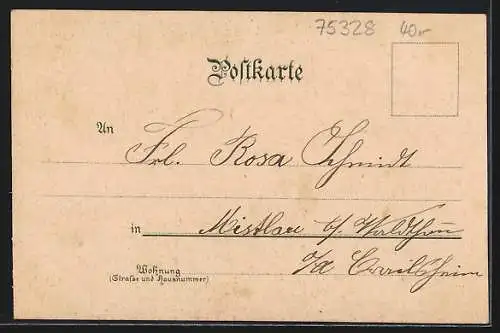 75328 40.-
Postkarte
An
Frl. Rosa Schmidt
in Mistlau b/ Waldthann
o/a Crailsheim
Wohnung
(Straße und Hausnummer)